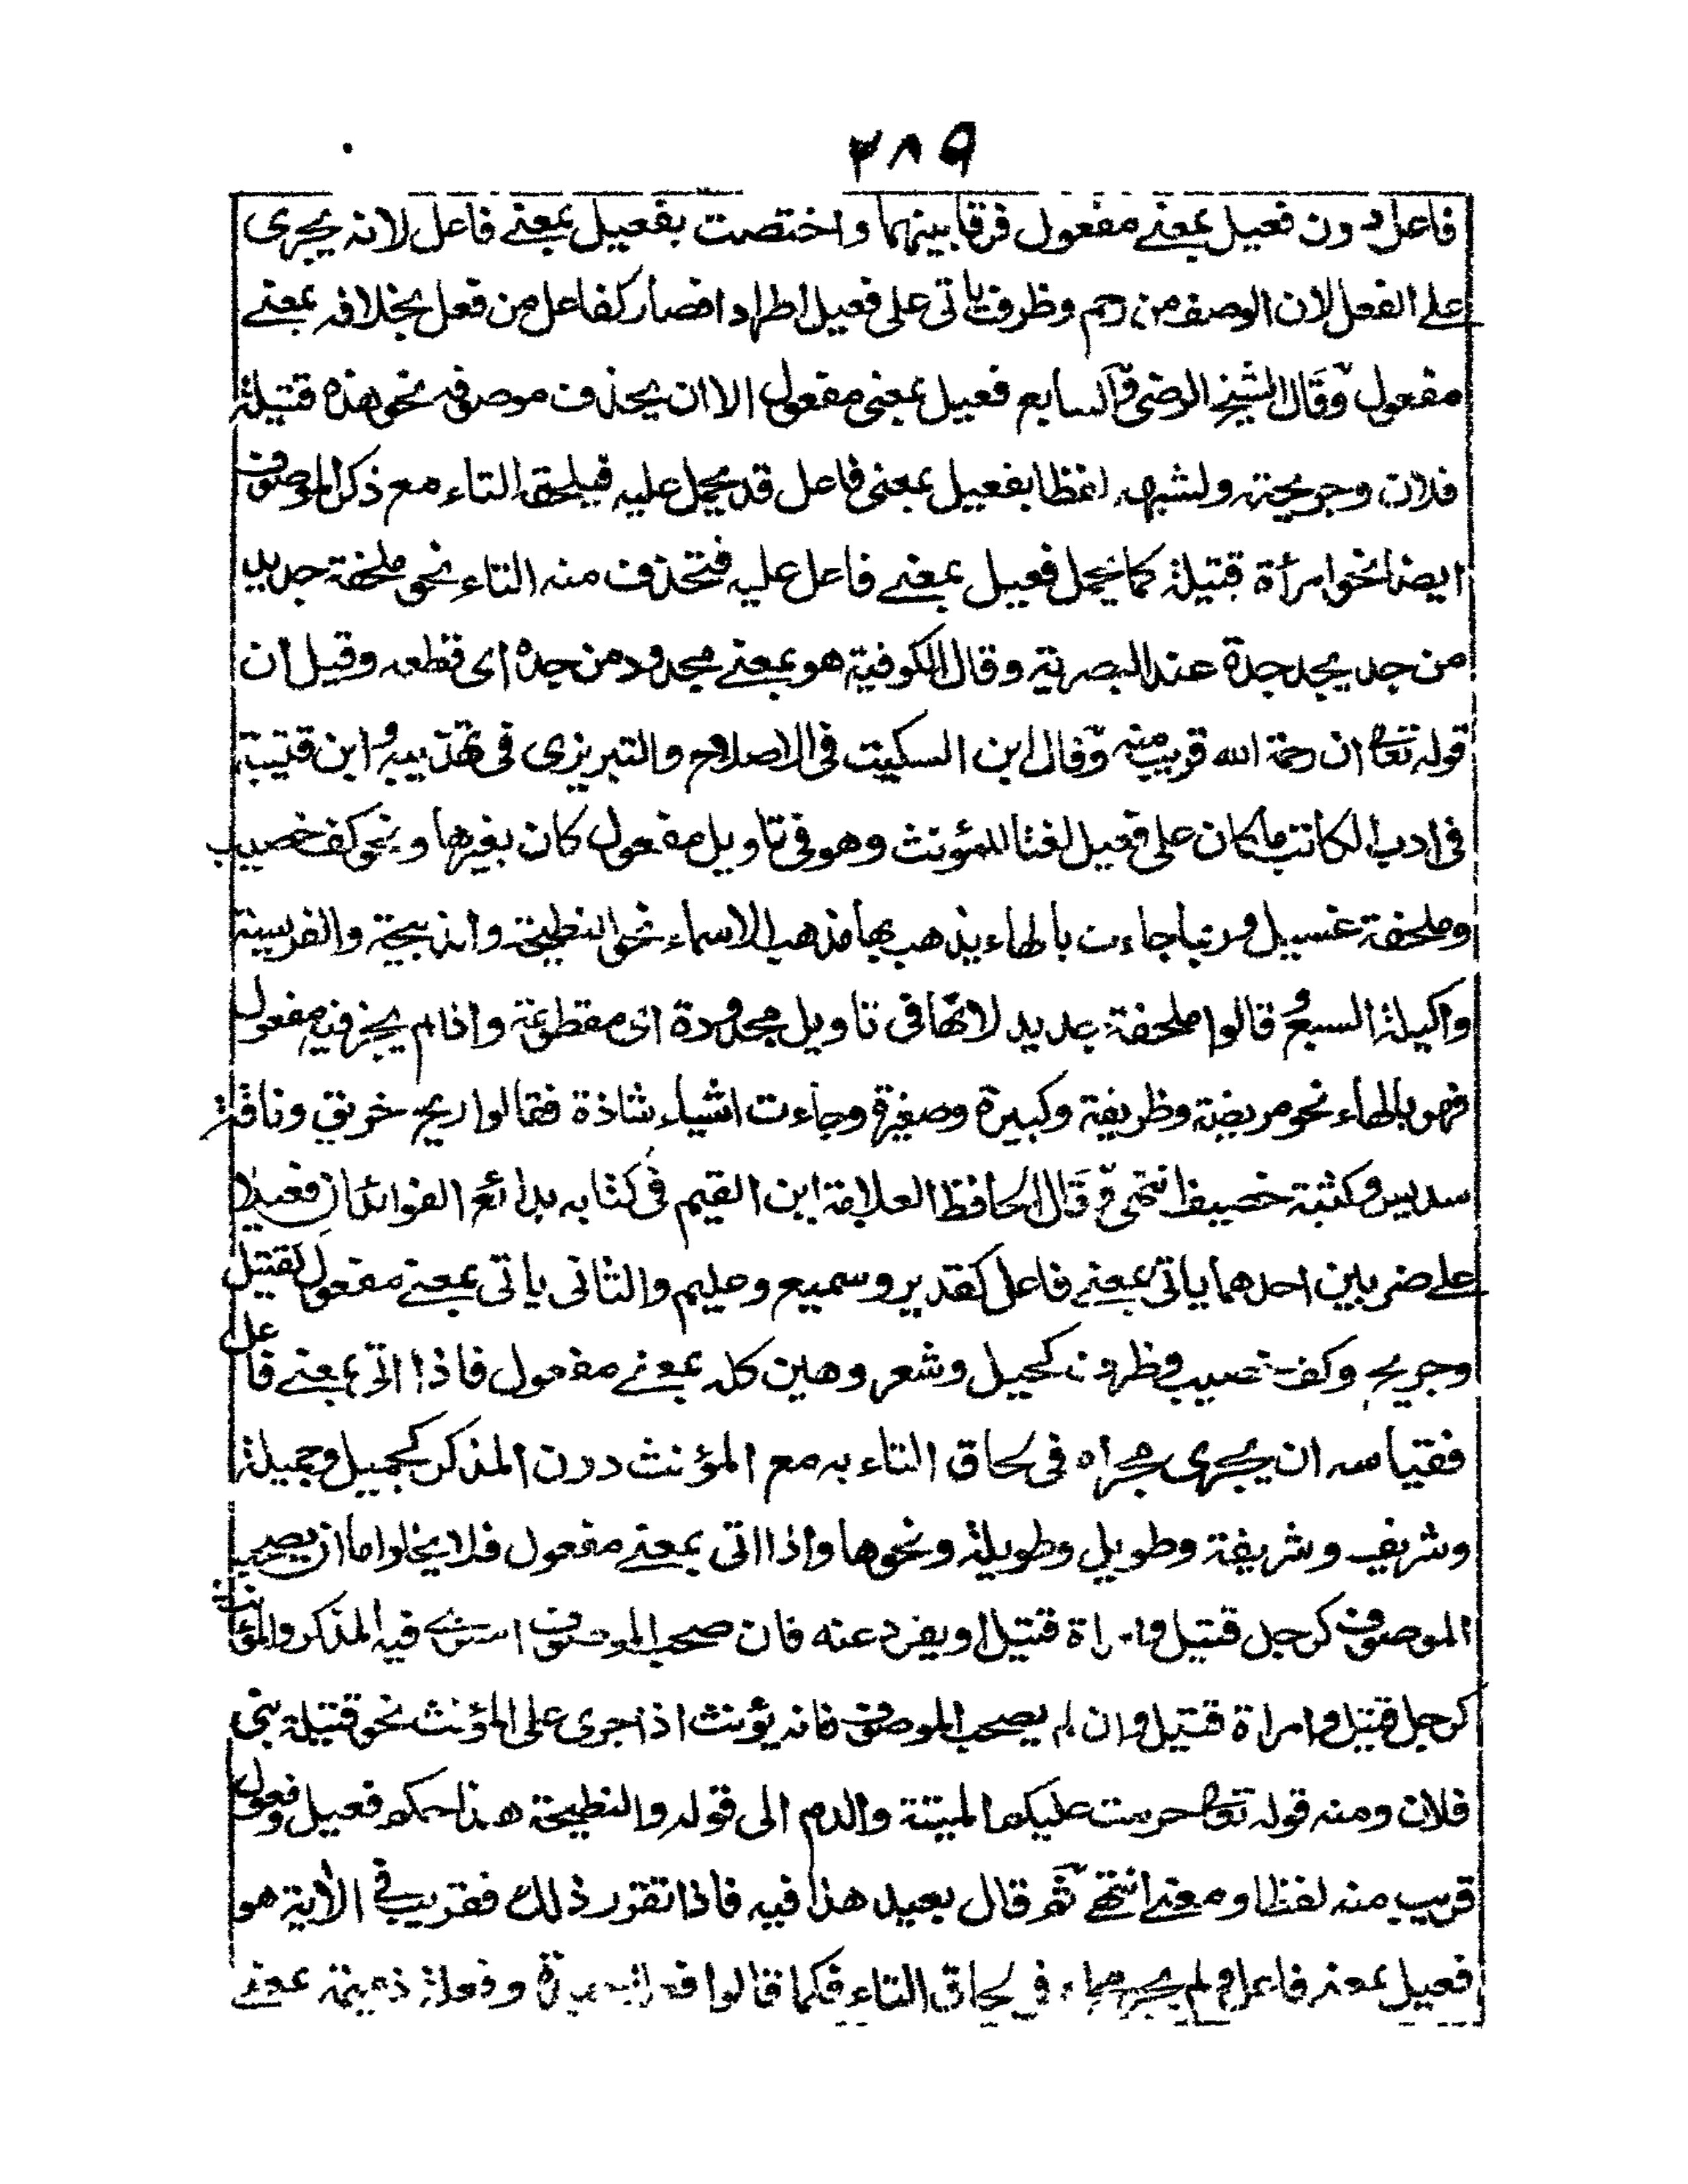 ٢٨٩
فاعل دون فعيل بمعنے مفعول فرقا بينهما واختصت بفعيل بمعنے فاعل لانه يجرى
علے الفعل لان الوصف من رحم وظرف ياتى على فعيل اطرادا فصار كفاعل من فعل بخلافه بمعنے
مفعول وقال الشيخ الرضى والسابع فعيل بمعنى مفعول الا ان يحذف موصوفه نحو هذه قتيلة
فلان وجريحته ولشبهه لفظا بفعيل بمعنى فاعل قد يحمل عليه فيلحقه التاء مع ذكر الموصوف
ايضا نحو امرأة قتيلة كما يحمل فعيل بمعنے فاعل عليه فتحذف منه التاء نحو ملحفة جديد
من جد يجد جدة عند البصرية وقال الكوفية هو بمعنے مجدود من جده اى قطعه وقيل ان
قوله تعا ان رحمة الله قريب منه وقال ابن السكيت فى الاصلاح والتبريزى فى تهذيبه وابن قتيبة
فى ادب الكاتب ما كان على فعيل لغتا للمؤنث وهو فى تاويل مفعول كان بغيرها ونحو كف خضيب
وملحفة غسيل وربما جاءت بالهاء يذهب بها مذهب الاسماء نحو النطيحة والذبيحة والفريسة
واكيلة السبع وقالوا ملحفة جديد لانها فى تاويل مجدودة اى مقطوعة واذا لم يجز فيه مفعول
فهو بالهاء نحو مريضة وظريفة وكبيرة وصغيرة وجاءت اشياء شاذة فقالوا ريح خريق وناقة
سديس وكتيبة خصيف انتهى وقال الحافظ العلامة ابن القيم فى كتابه بدائع الفوائد ان فعيلا
علے ضربين احدهما ياتى بمعنے فاعل كقدير وسميع وعليم والثانى ياتى بمعنے مفعول كقتيل
وجريح وكف خضيب وطرف كحيل وشعر دهين كله بمعنے مفعول فاذا اتى بمعنے فاعل
فقياسه ان يجرى مجراه فى لحاق التاء به مع المؤنث دون المذكر كجميل وجميلة
وشريف وشريفة وطويل وطويلة ونحوها واذا اتى بمعنے مفعول فلا يخلوا ما ان يصحب
الموصوف كرجل قتيل وامراة قتيل او يفرد عنه فان صحب الموصوف استوے فيه المذكر والمؤنث
كرجل قتيل وامراة قتيل وان لم يصحب الموصوف فانه يؤنث اذا جرى على المؤنث نحو قتيلة بنى
فلان ومنه قوله تعا حرمت عليكم الميتة والدم الى قوله والنطيحة هذا حكم فعيل وفعول
قريب منه لفظا ومعنى انتهے ثم قال بعيد هذا فيه فاذا تقرر ذلك فقريب فى الأية هو
فعيل بمعنے فاعل ولم يجر مجراه فى لحاق التاء فكما قالوا خصلة ذميمة بمعنے